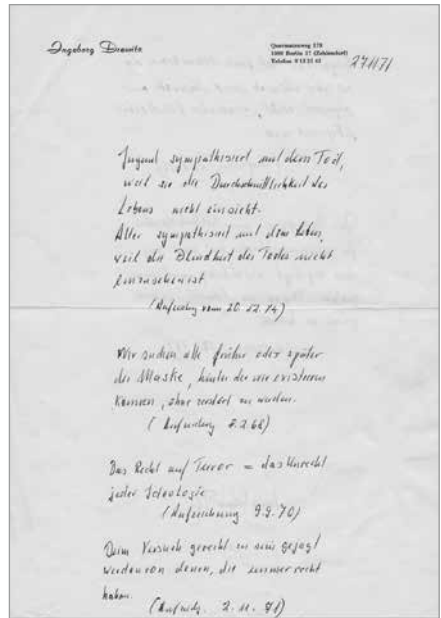 Ingeborg Drewitz
Quermatenweg 178
1000 Berlin 37 (Zehlendorf)
Telefon 8 13 25 43
27/1/71
Jugend sympathisiert mit dem Tod,
weil sie die Durchschnittlichkeit des
Lebens nicht einsieht.
Alter sympathisiert mit dem Leben,
weil die Blindheit des Todes nicht
einzusehen ist
(Aufzeichng vom 20.12.74)
Wir suchen alle früher oder später
die Maske, hinter der wir existieren
können, ohne zerstört zu werden.
(Aufzeichng 2.2.68)
Das Recht auf Terror = das Unrecht
jeder Ideologie
(Aufzeichnung 9.9.70)
Beim Versuch gerecht zu sein gejagt
werden von denen, die immer recht
haben.
(Aufzeichg. 2.11.71)